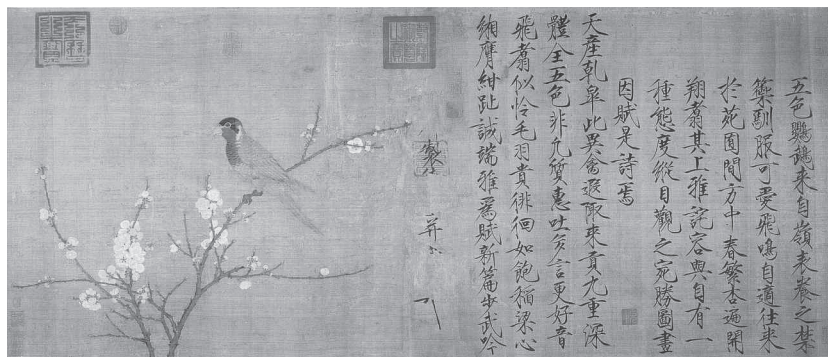 五色鸚鵡来自嶺表養之禁
籞馴服可愛飛鳴自適往来
於苑囿間方中春繁杏遍開
翔翥其上雅詫容與自有一
種態度縱目觀之宛勝圖畫
因賦是詩焉
天產乾皐此異禽遐陬来貢九重深
體全五色非凡質惠吐多言更好音
飛翥似憐毛羽貴徘徊如飽稻粱心
緗膺紺趾誠端雅爲賦新篇步武吟
製 并